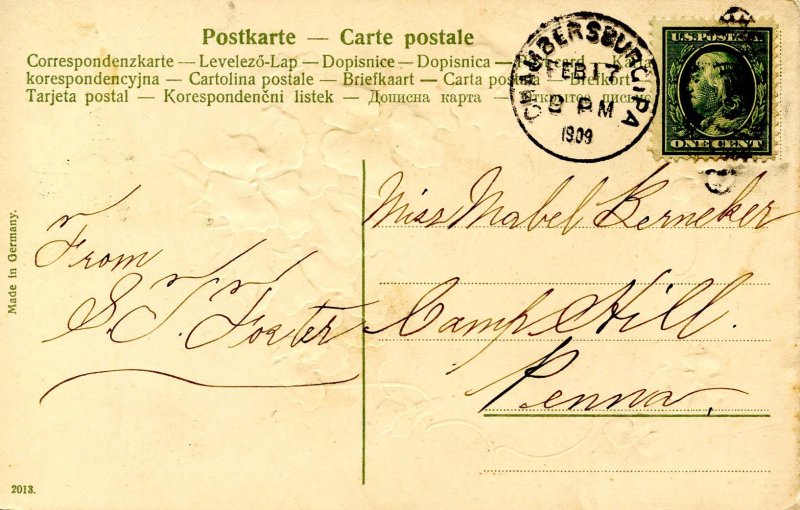 Postkarte — Carte postale
Correspondenzkarte — Levelező-Lap — Dopisnice — Dopisnica —
korespondencyjna — Cartolina postale — Briefkaart — Carta
Tarjeta postal — Korespondenční listek — Дописна карта —
CHAMBERSBURG, PA
FEB 17
8 PM
1909
U.S. POSTAGE
ONE CENT
Made in Germany.
From
S. T. Foster
Miss Mabel Kerneker
Camp Hill.
Penna,
2013.